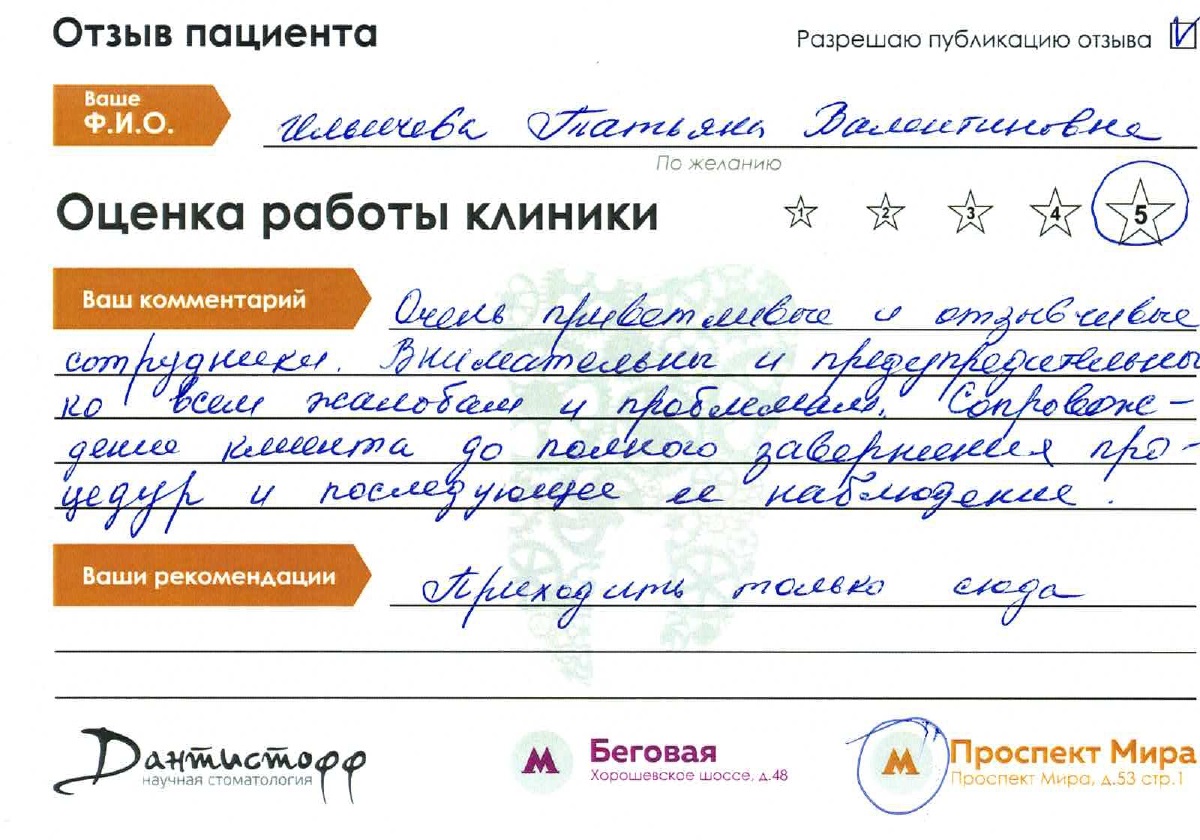 Отзыв пациента
Разрешаю публикацию отзыва
Ваше
Ф.И.О.
Ильичева Татьяна Валентиновна
По желанию
Оценка работы клиники
1 2 3 4 5
Ваш комментарий
Очень приветливые и отзывчивые
сотрудники. Внимательны и предупредительны
ко всем жалобам и проблемам. Сопровож-
дение клиента до полного завершения про-
цедур и последующее ее наблюдение.
Ваши рекомендации
Приходить только сюда
Дантистофф
научная стоматология
М Беговая
Хорошевское шоссе, д.48
М Проспект Мира
Проспект Мира, д.53 стр.1